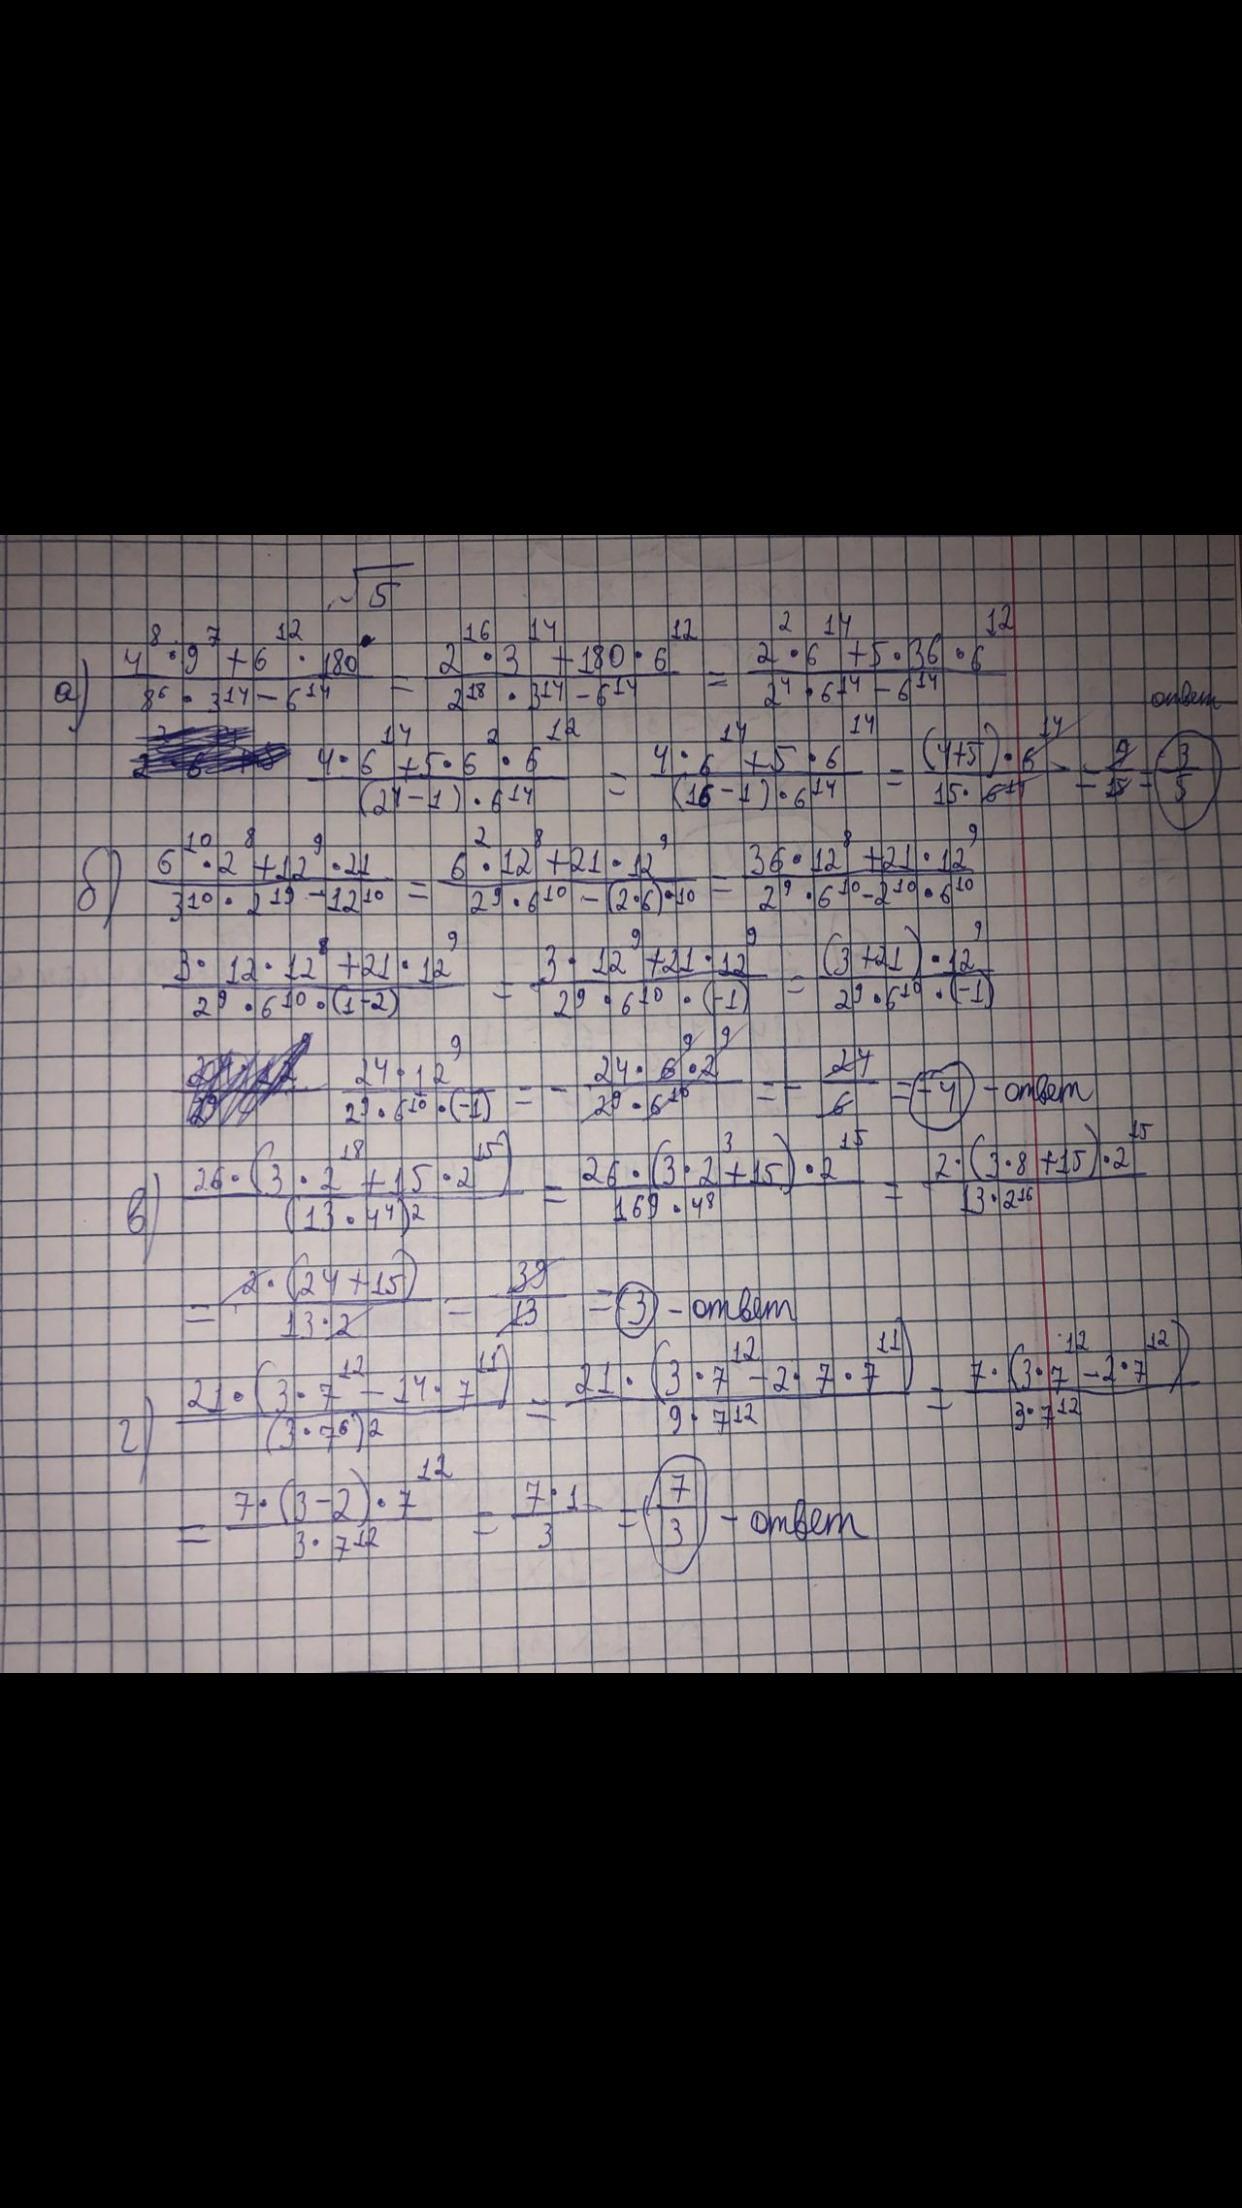 √5
а) (4⁸·9⁷+6¹²·180)/(8⁶·3¹⁴−6¹⁴) = (2¹⁶·3¹⁴+180·6¹²)/(2¹⁸·3¹⁴−6¹⁴) = (2²·6¹⁴+5·36·6¹²)/(2⁴·6¹⁴−6¹⁴)
(4·6¹⁴+5·6²·6¹²)/((2⁴−1)·6¹⁴) = (4·6¹⁴+5·6¹⁴)/((16−1)·6¹⁴) = ((4+5)·6¹⁴)/(15·6¹⁴) = 9/15 = 3/5 ответ
б) (6¹⁰·2⁸+12⁹·21)/(3¹⁰·2¹⁹−12¹⁰) = (6²·12⁸+21·12⁹)/(2⁹·6¹⁰−(2·6)·10) = (36·12⁸+21·12⁹)/(2⁹·6¹⁰−2¹⁰·6¹⁰)
(3·12·12⁸+21·12⁹)/(2⁹·6¹⁰·(1−2)) = (3·12⁹+21·12⁹)/(2⁹·6¹⁰·(−1)) = ((3+21)·12⁹)/(2⁹·6¹⁰·(−1))
(24·12⁹)/(2⁹·6¹⁰·(−1)) = −(24·6⁹·2⁹)/(2⁹·6¹⁰) = −24/6 = −4 - ответ
в) (26·(3·2¹⁸+15·2¹⁵))/(13·4⁴)² = (26·(3·2³+15)·2¹⁵)/(169·4⁸) = (2·(3·8+15)·2¹⁵)/(13·2¹⁶)
= (2·(24+15))/(13·2) = 39/13 = 3 - ответ
г) (21·(3·7¹²−14·7¹¹))/(3·7⁶)² = (21·(3·7¹²−2·7·7¹¹))/(9·7¹²) = (7·(3·7¹²−2·7¹²))/(3·7¹²)
= (7·(3−2)·7¹²)/(3·7¹²) = (7·1)/3 = 7/3 - ответ